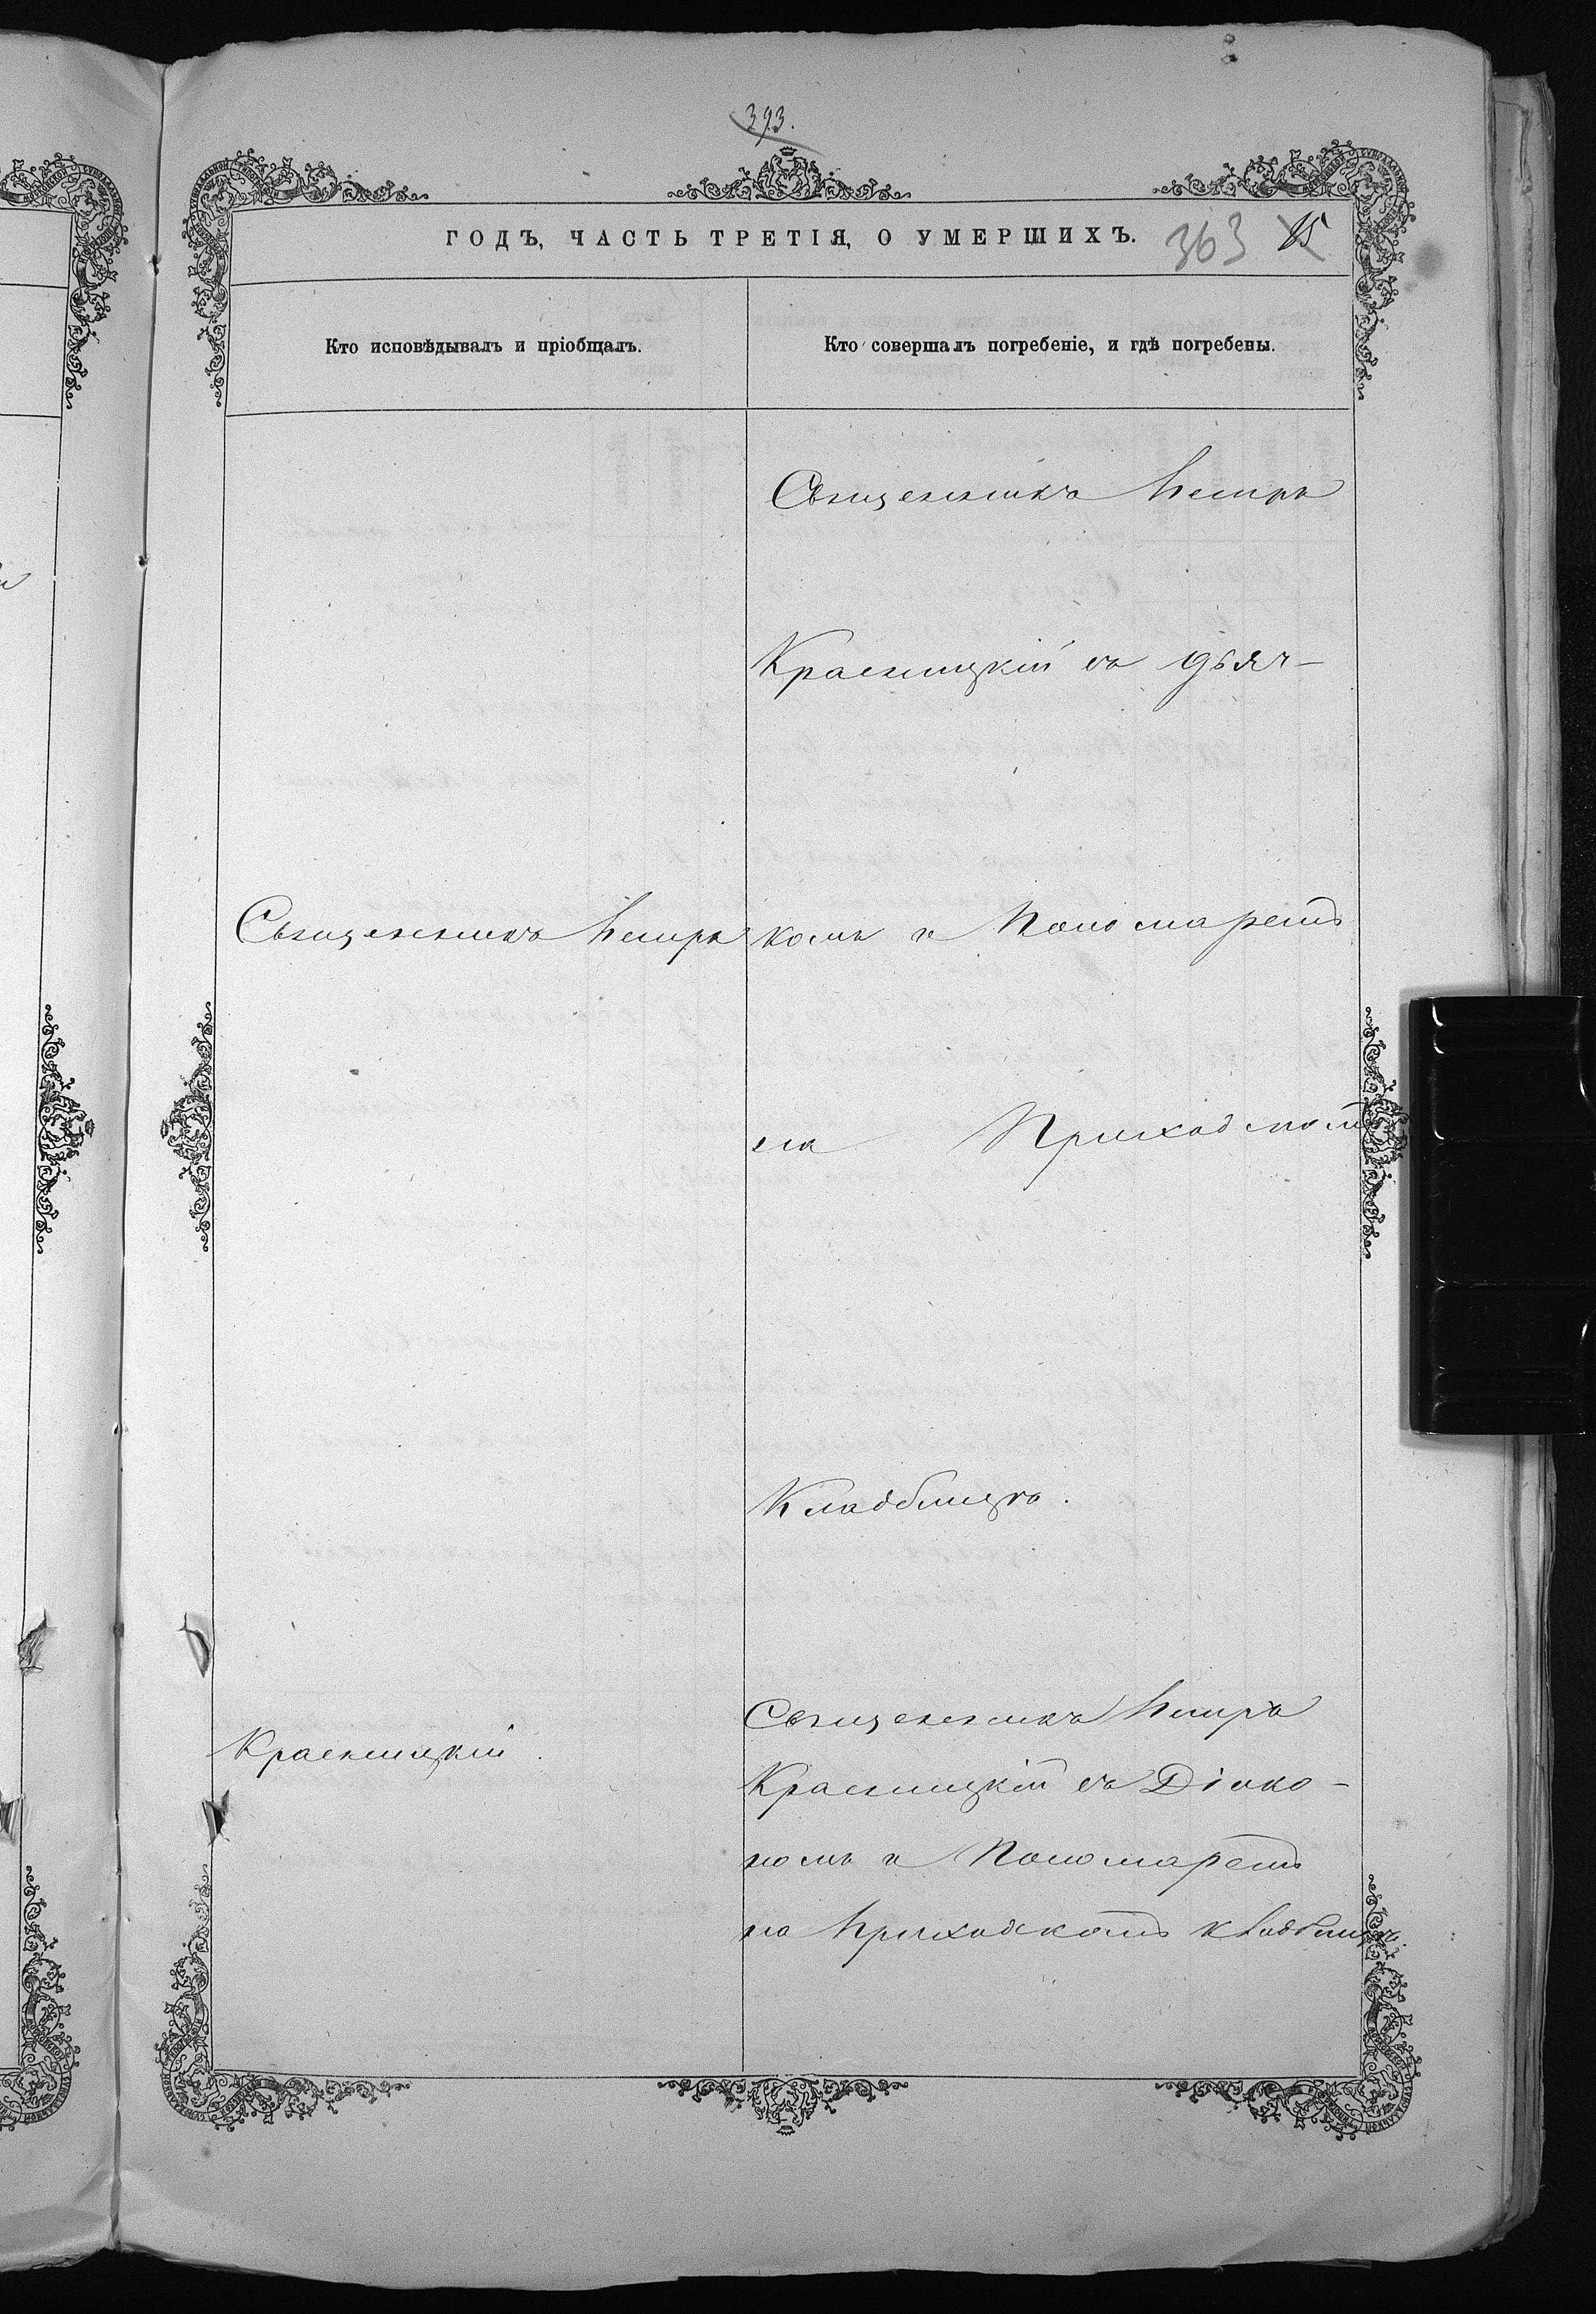 393.
ГОДЪ, ЧАСТЬ ТРЕТІЯ, О УМЕРШИХЪ. 363 15
Кто исповѣдывалъ и пріобщалъ.
Кто совершалъ погребеніе, и гдѣ погребены.
Священникъ Петръ
Красницкій съ дьяч-
Священникъ Петръ
комъ и Пономаремъ
на Приходском
Кладбищѣ.
Красницкій.
Священникъ Петръ
Красницкій съ Діако-
номъ и Пономаремъ
на Приходскомъ кладбищѣ.